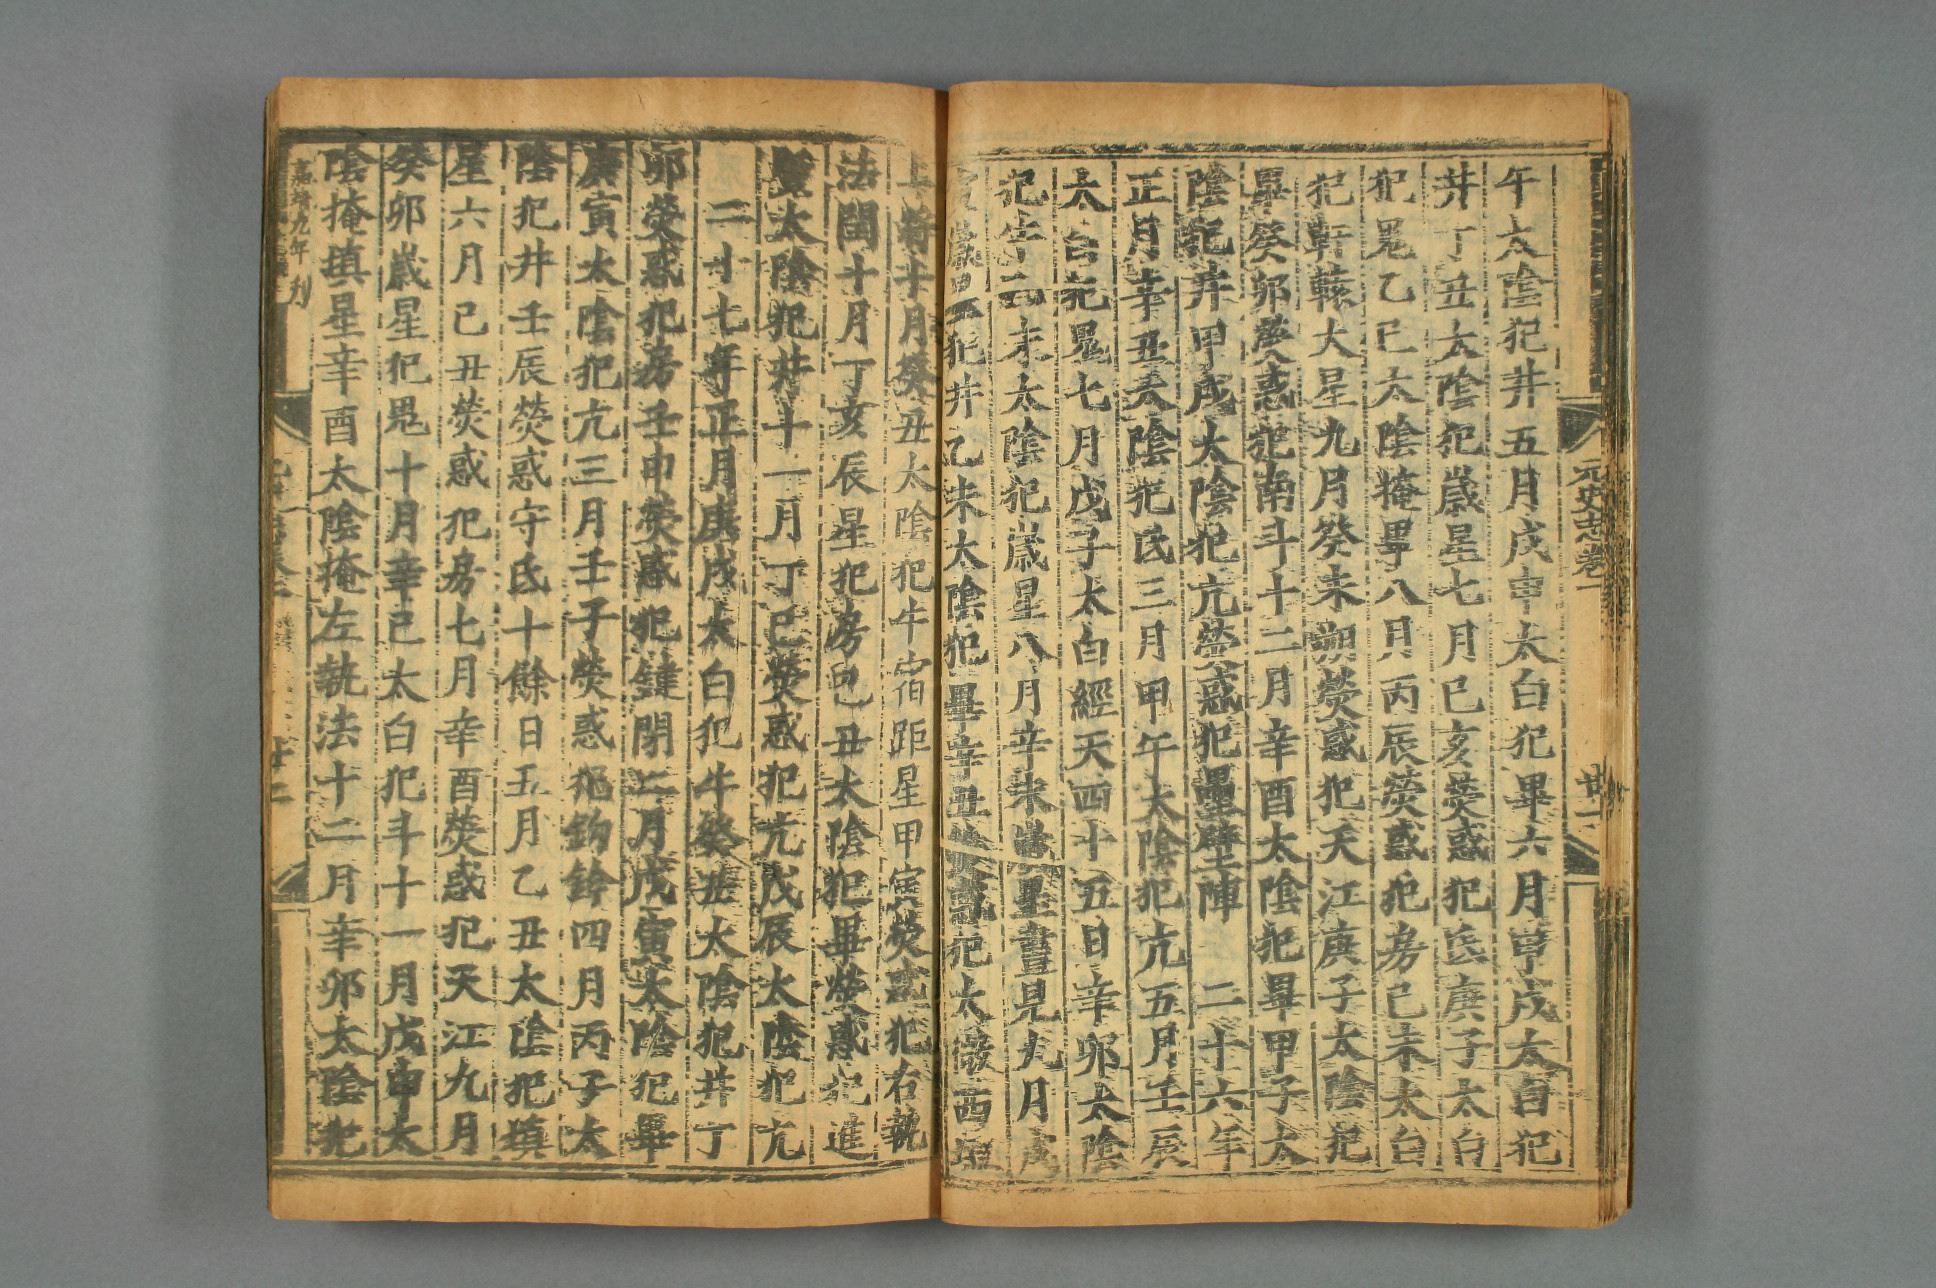 午太陰犯井五月戊申太白犯畢六月甲戌太白犯
井丁丑太陰犯歲星七月己亥熒惑犯氐庚子太白
犯鬼乙巳太陰掩畢八月丙辰熒惑犯房己未太白
犯軒轅大星九月癸未朔熒惑犯天江庚子太陰犯
畢癸卯熒惑犯南斗十二月辛酉太陰犯畢甲子太
陰犯井甲戌太陰犯亢熒惑犯壘壁陣 二十六年
正月辛丑太陰犯氐三月甲午太陰犯亢五月壬辰
太白犯鬼七月戊子太白經天四十五日辛卯太陰
犯牛乙未太陰犯歲星八月辛未歲星晝見九月戊
寅歲星犯井乙未太陰犯畢辛丑熒惑犯太微西垣
上將十月癸丑太陰犯牛宿距星甲寅熒惑犯右執
法閏十月丁亥辰星犯房己丑太陰犯畢熒惑犯進
賢太陰犯井十一月丁巳熒惑犯亢戊辰太陰犯亢
二十七年正月庚戌太白犯牛癸丑太陰犯井丁
卯熒惑犯房壬申熒惑犯鍵閉二月戊寅太陰犯畢
庚寅太陰犯亢三月壬子熒惑犯鉤鈐四月丙子太
陰犯井壬辰熒惑守氐十餘日五月乙丑太陰犯填
星六月己丑熒惑犯房七月辛酉熒惑犯天江九月
癸卯歲星犯鬼十月辛巳太白犯斗十一月戊申太
陰掩填星辛酉太陰掩左執法十二月辛卯太陰犯
元史志卷一
廿一
嘉靖九年刊
廿二